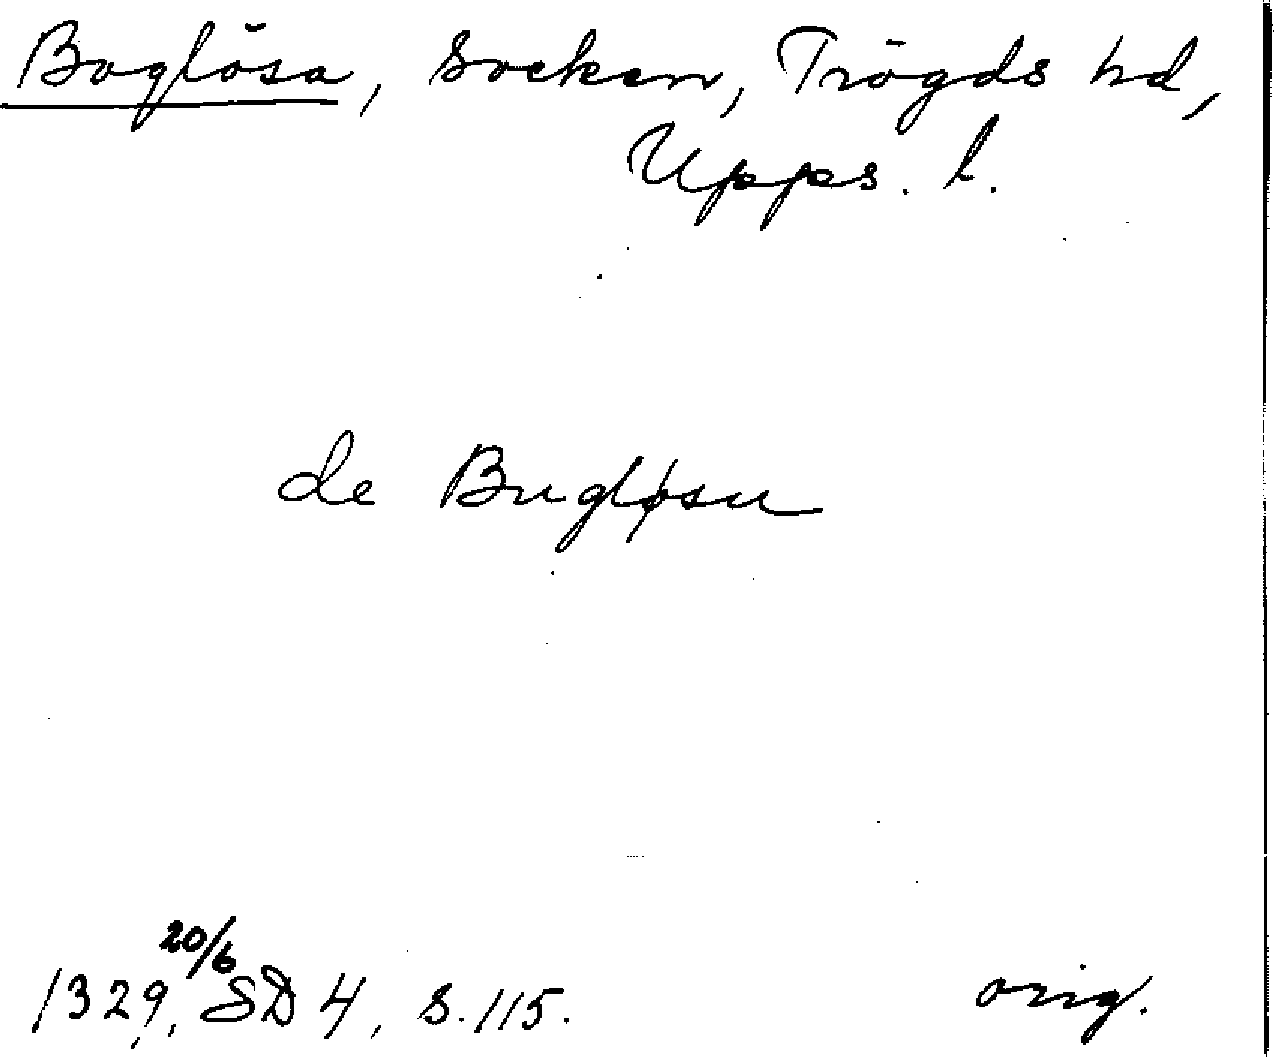 Boglösa, Socken, Trögds hd,
Upps. l.
de Bugløsu
1329, 20/6 SD 4, s. 115. orig.